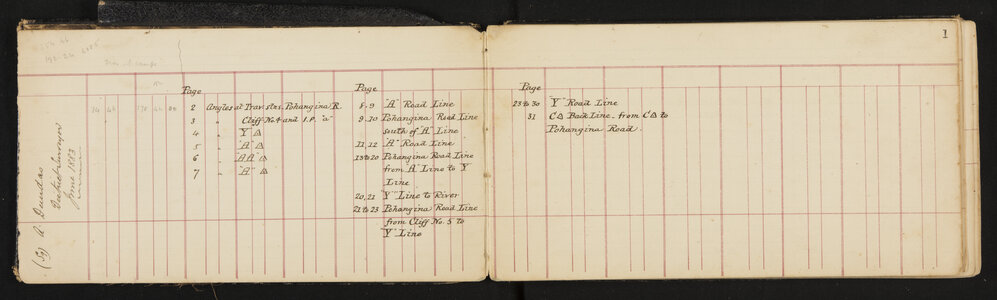 1
Page
2 Angles at Trav. stns. Pohangina R.
3 " Cliff No. 4 and I.P. "a"
4 " Y △
5 " "A" △
6 " "AA" △
7 " "A" △
Page
8-9 "A" Road Line
9-10 Pohangina Road Line
south of "A" Line
11, 12 "A" Road Line
13 to 20 Pohangina Road Line
from "A" Line to Y
Line
20, 21 "Y" Line to River
21 to 23 Pohangina Road Line
from Cliff No. 5 to
"Y" Line
Page
23 to 30 "Y" Road Line
31 C△ Back Line. from C△ to
Pohangina Road.
(Sg) A Dundas
District Surveyor
June 1883